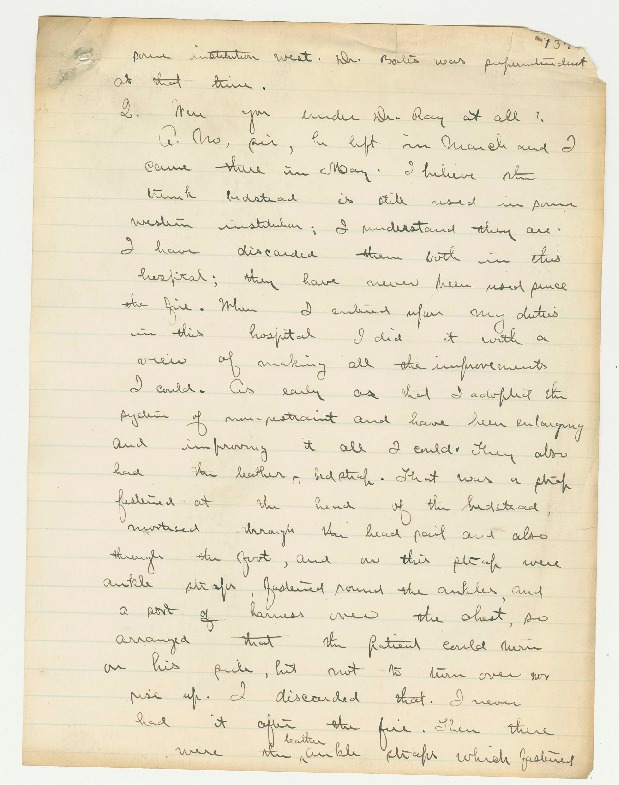 137
some institution west. Dr. Bates was superintendent
at that time.
Q. Were you under Dr. Ray at all?
A. No, sir, he left in March and I
came there in May. I believe the
trunk bedstead is still used in some
western institution; I understand they are.
I have discarded them both in this
hospital; they have never been used since
the fire. When I entered upon my duties
in this hospital I did it with a
view of making all the improvements
I could. As early as that I adopted the
system of non-restraint and have been enlarging
and improving it all I could. They also
had the leather bedstrap. That was a strap
fastened at the head of the bedstead,
mortised through the head rail and also
through the foot, and on this strap were
ankle straps, fastened round the ankles, and
a sort of harness over the chest, so
arranged that the patient could turn
on his side, but not to turn over nor
rise up. I discarded that. I never
had it after the fire. Then there
were the leather ankle straps which fastened